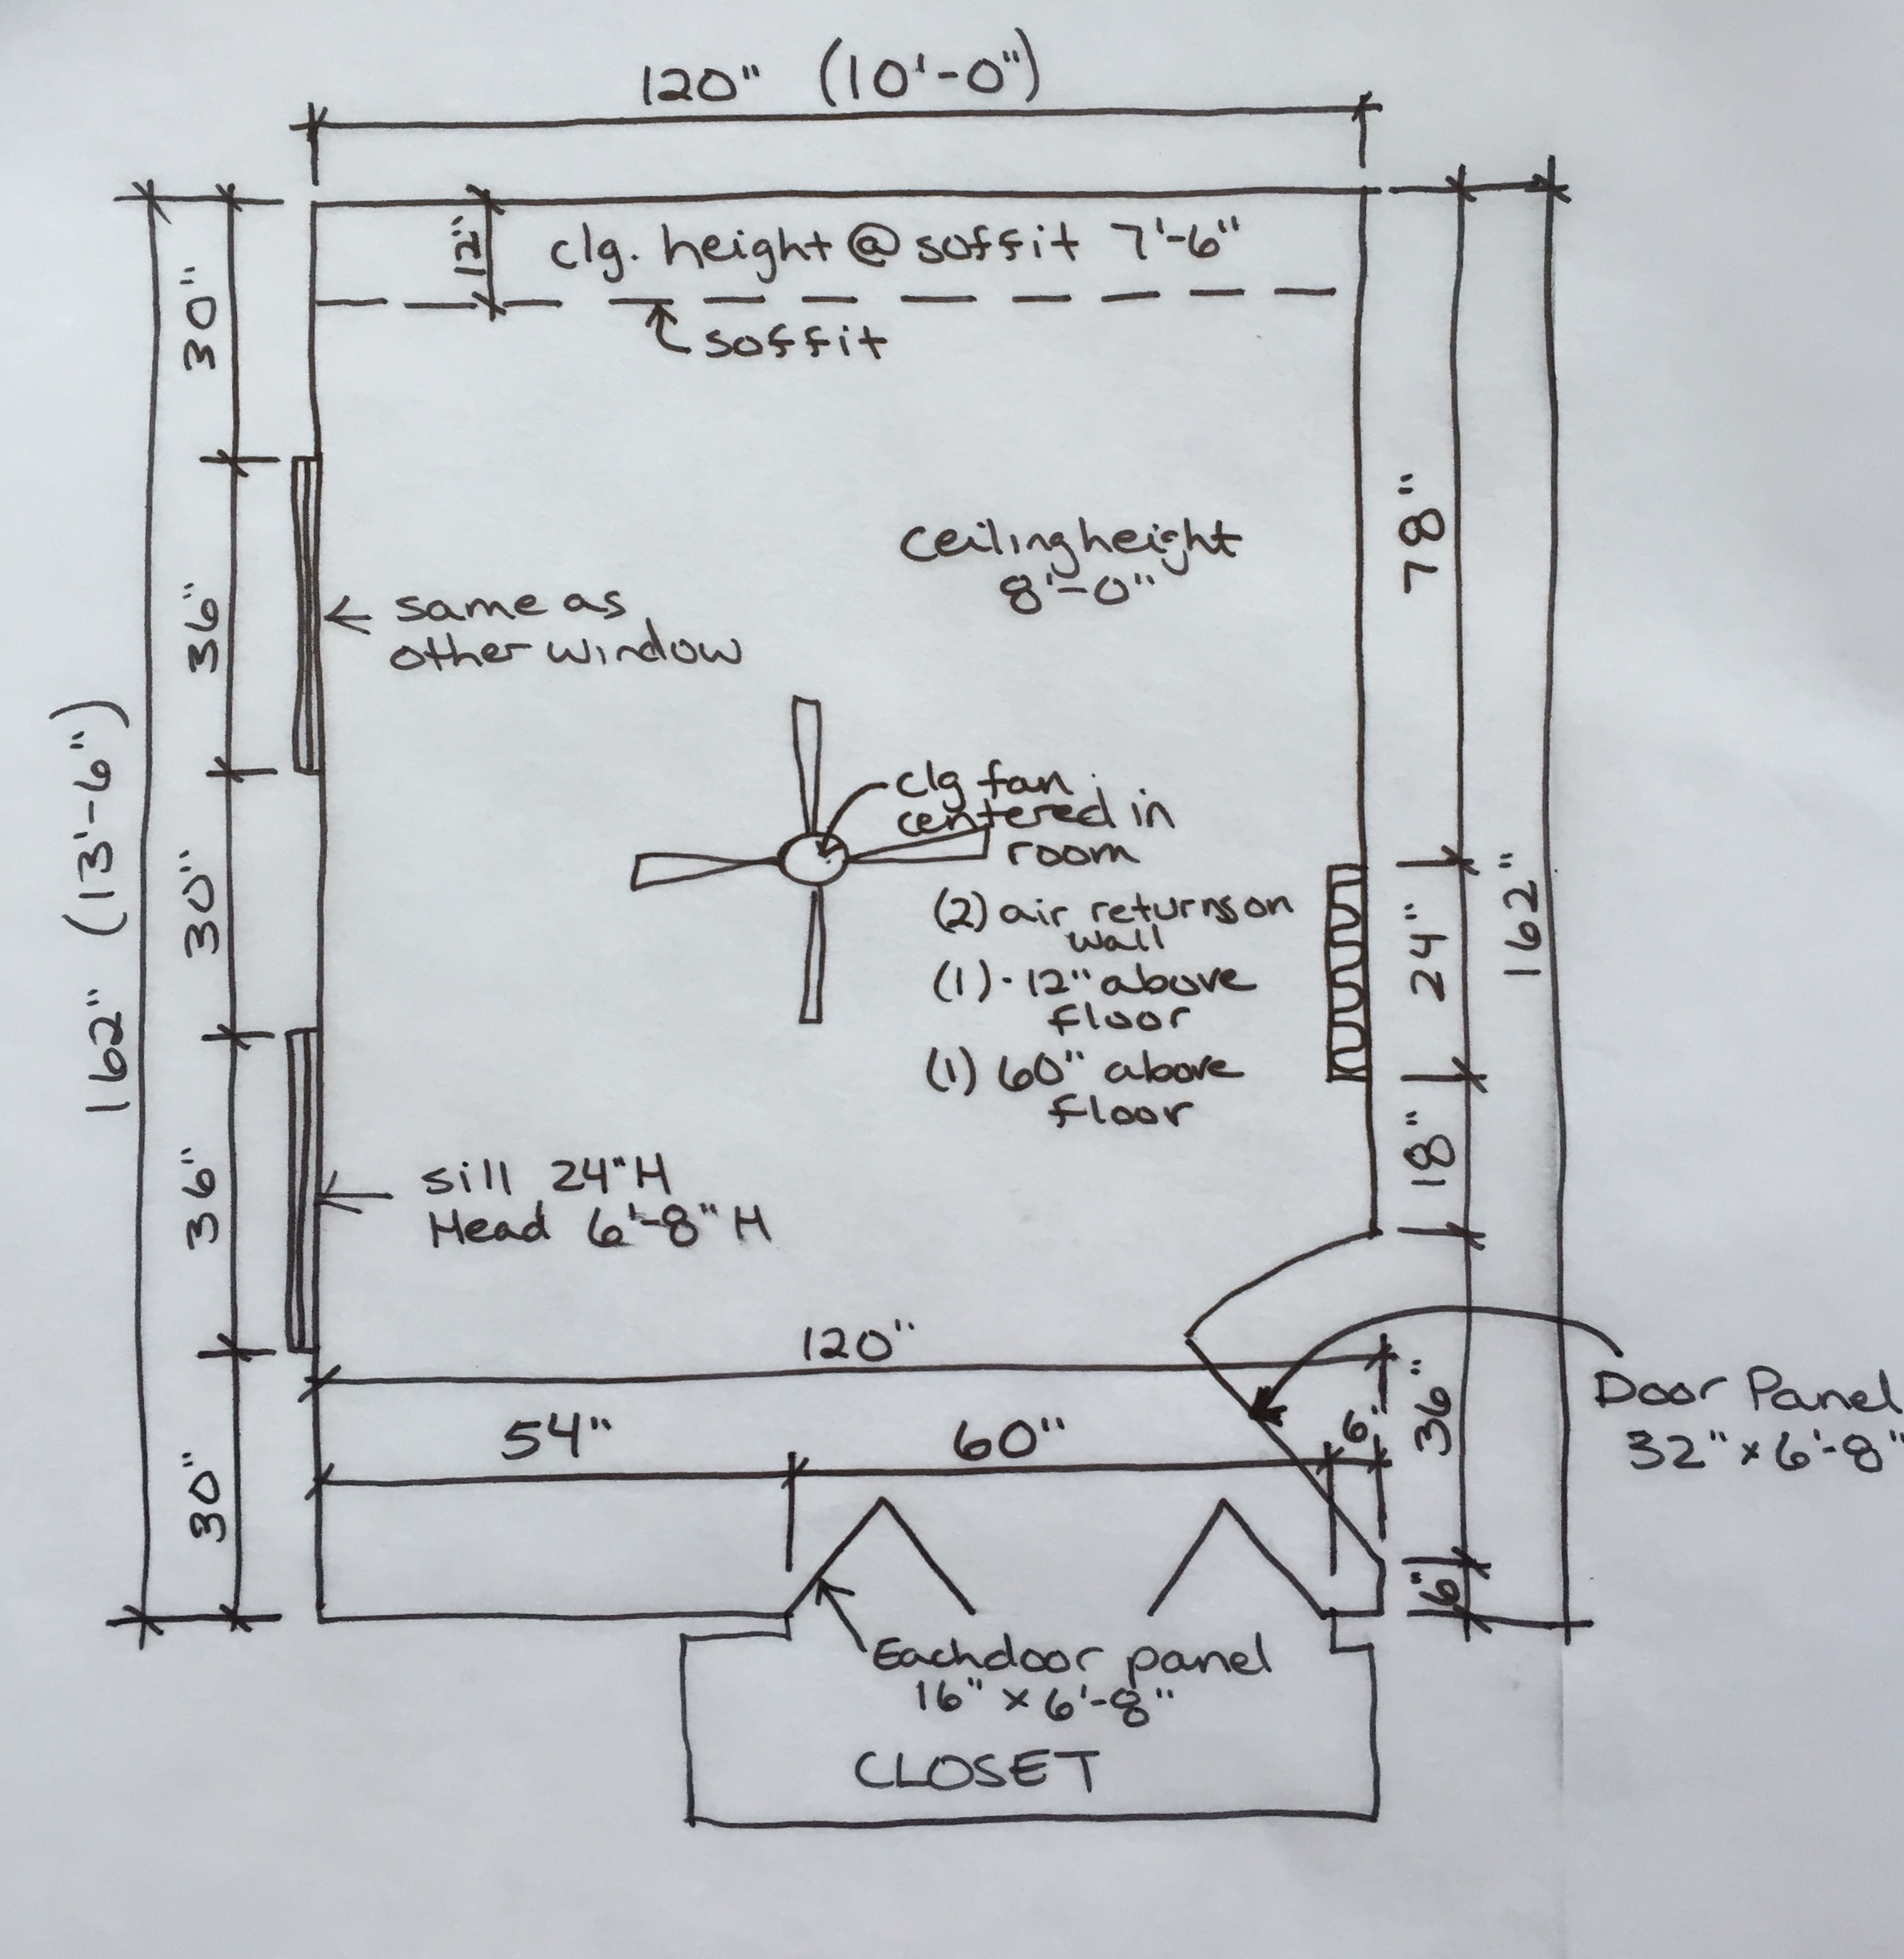 120" (10'-0")
12"
clg. height @ soffit 7'-6"
soffit
30"
36"
30"
36"
30"
162" (13'-6")
same as
other window
ceiling height
8'-0"
78"
24"
162"
18"
36"
6"
clg fan
centered in
room
(2) air returns on
wall
(1) - 12" above
floor
(1) 60" above
floor
sill 24"H
Head 6'-8"H
120"
54"
60"
6"
Door Panel
32" x 6'-8"
Each door panel
16" x 6'-8"
CLOSET